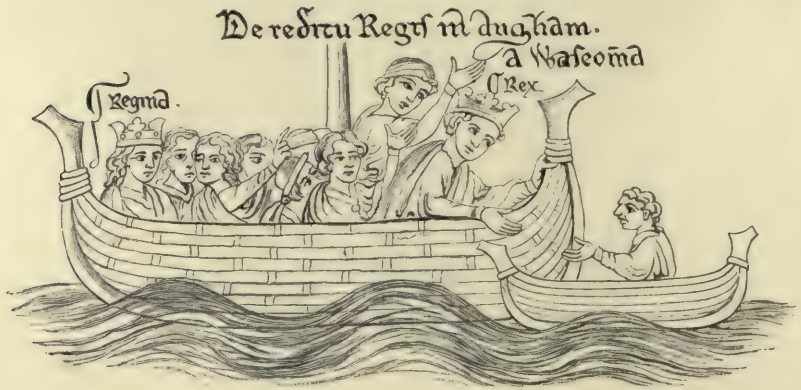 De reditu Regis in angliam.
a Wasconia
Regina.
Rex